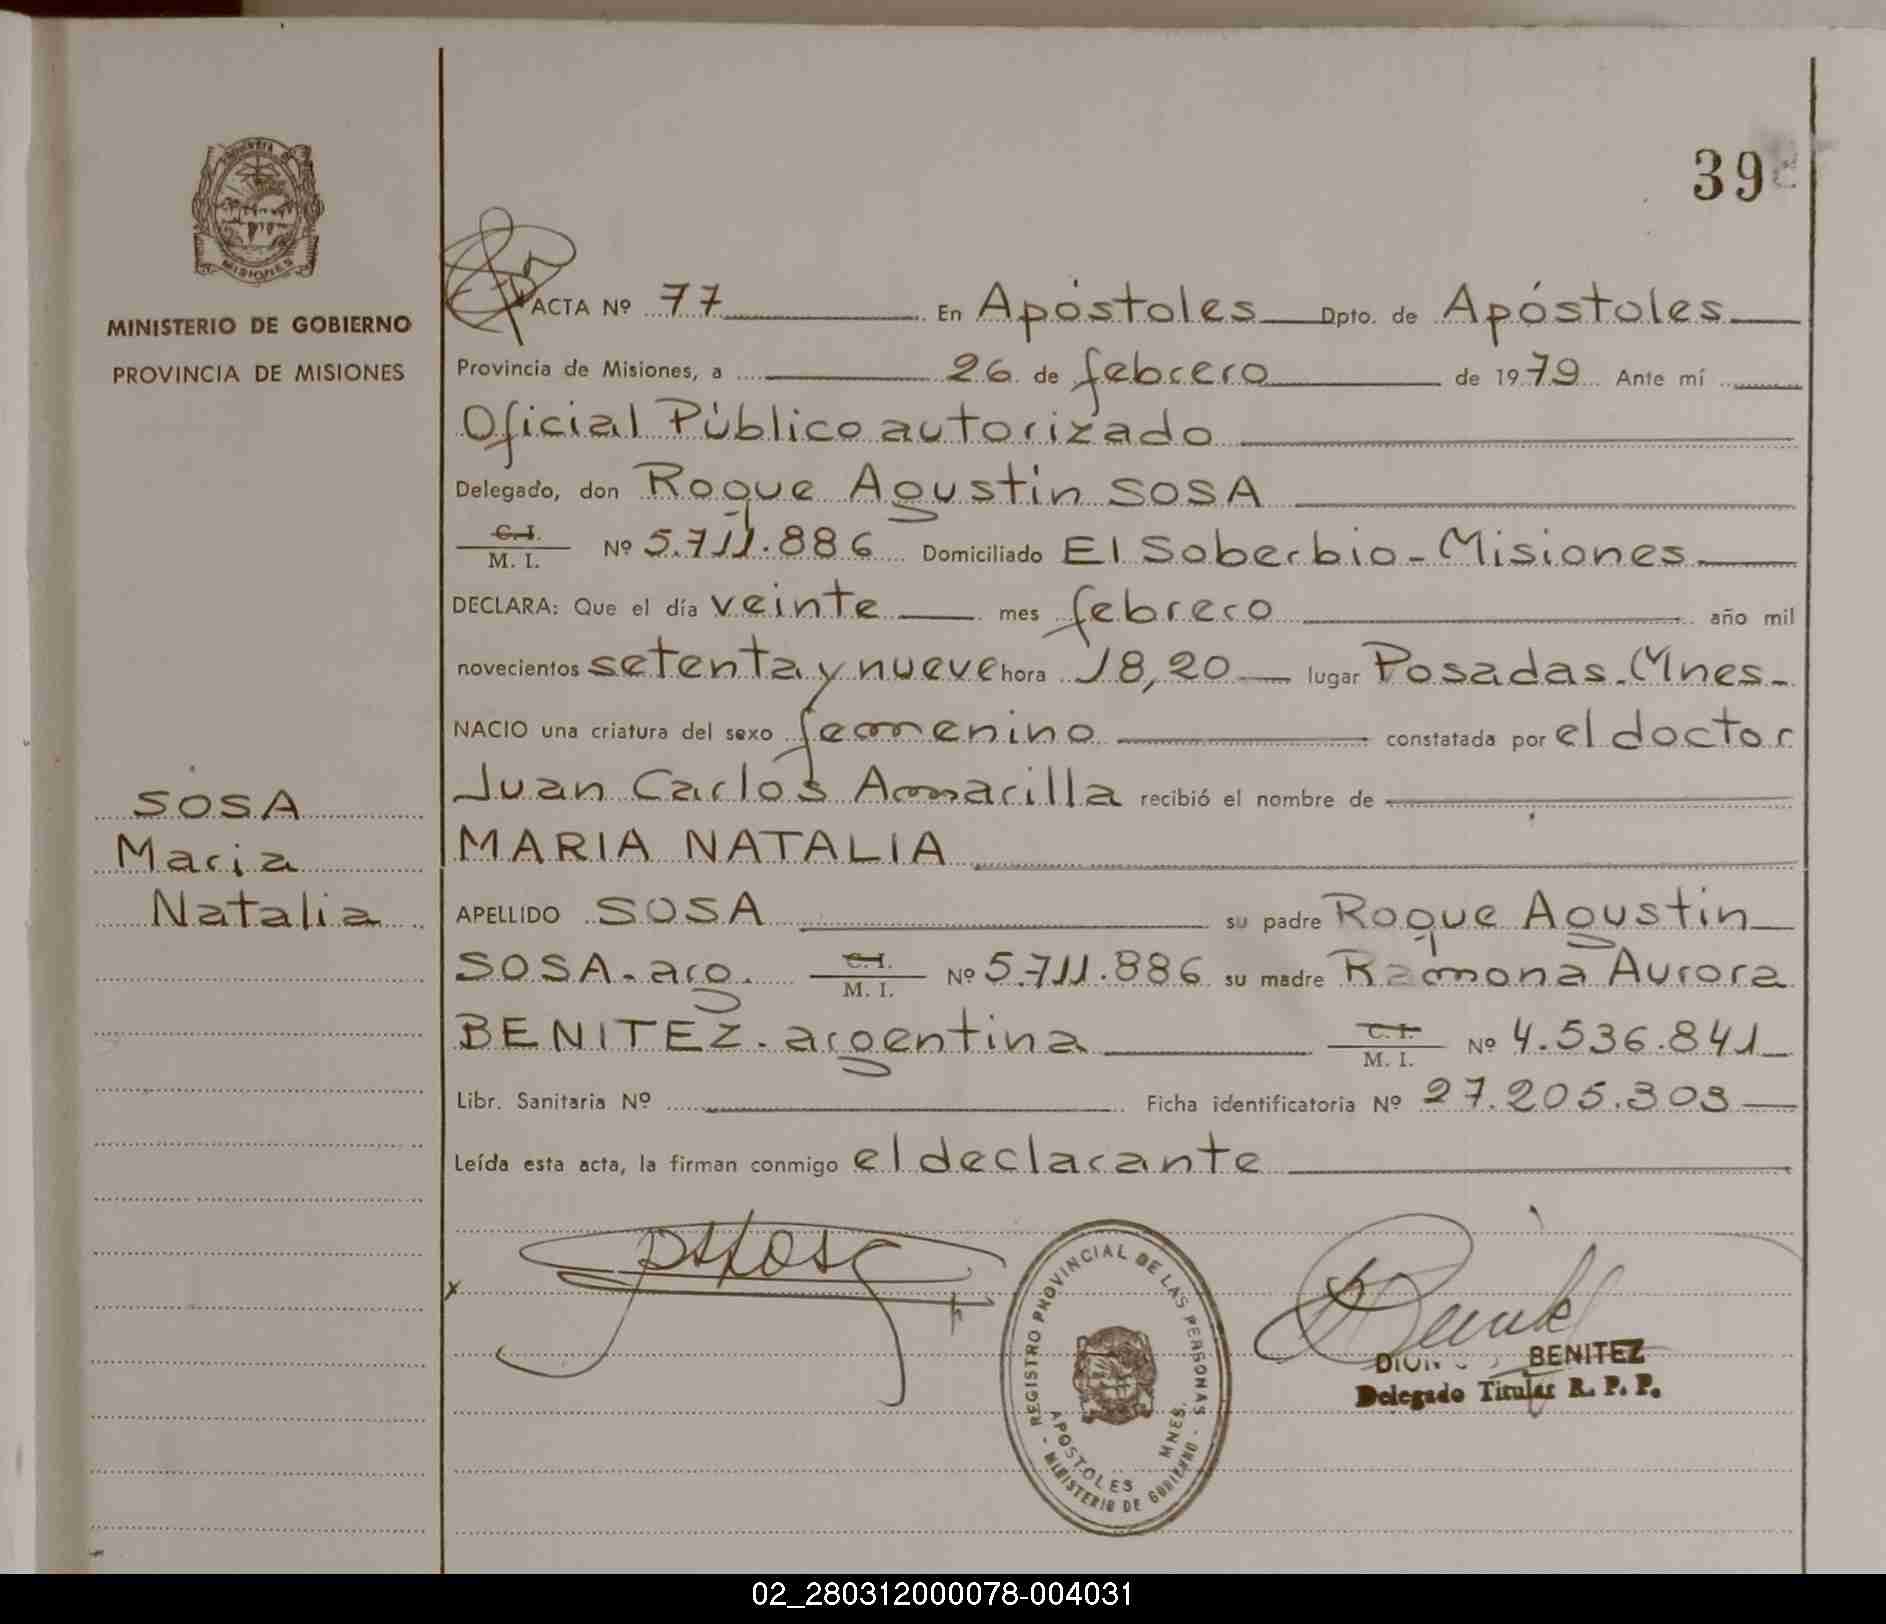 39
PROVINCIA DE
MISIONES
MINISTERIO DE GOBIERNO
PROVINCIA DE MISIONES
ACTA Nº 77 En Apóstoles Dpto. de Apóstoles
Provincia de Misiones, a 26 de febrero de 1979 Ante mí
Oficial Público autorizado
Delegado, don Roque Agustin SOSA
C. I.
M. I. Nº 5.711.886 Domiciliado El Soberbio - Misiones
DECLARA: Que el día veinte mes febrero año mil
novecientos setenta y nueve hora 18,20 lugar Posadas - Mnes -
NACIO una criatura del sexo femenino constatada por el doctor
Juan Carlos Amarilla recibió el nombre de
MARIA NATALIA
SOSA
Maria
Natalia
APELLIDO SOSA su padre Roque Agustin
SOSA - arg. C. I. M. I. Nº 5.711.886 su madre Ramona Aurora
BENITEZ - argentina C. I. M. I. Nº 4.536.841
Libr. Sanitaria Nº Ficha identificatoria Nº 27.205.303
Leída esta acta, la firman conmigo el declarante
REGISTRO PROVINCIAL DE LAS PERSONAS
APOSTOLES MNES.
- MINISTERIO DE GOBIERNO -
BENITEZ
Delegado Titular R. P. P.
02_280312000078-004031